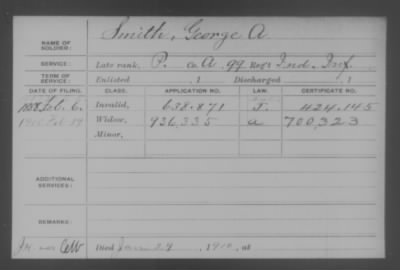 NAME OF SOLDIER: Smith, George A.
SERVICE: Late rank, P. Co. A. 99 Reg't Ind. Inf.
TERM OF SERVICE: Enlisted , 1 Discharged , 1
DATE OF FILING. CLASS. APPLICATION NO. LAW. CERTIFICATE NO.
1888 Feb. 6. Invalid, 638.871 424.145
1910 Feb Widow, 936,335 a 700,323
Minor,
ADDITIONAL SERVICES:
REMARKS:
Died Jan 29, 1910, at